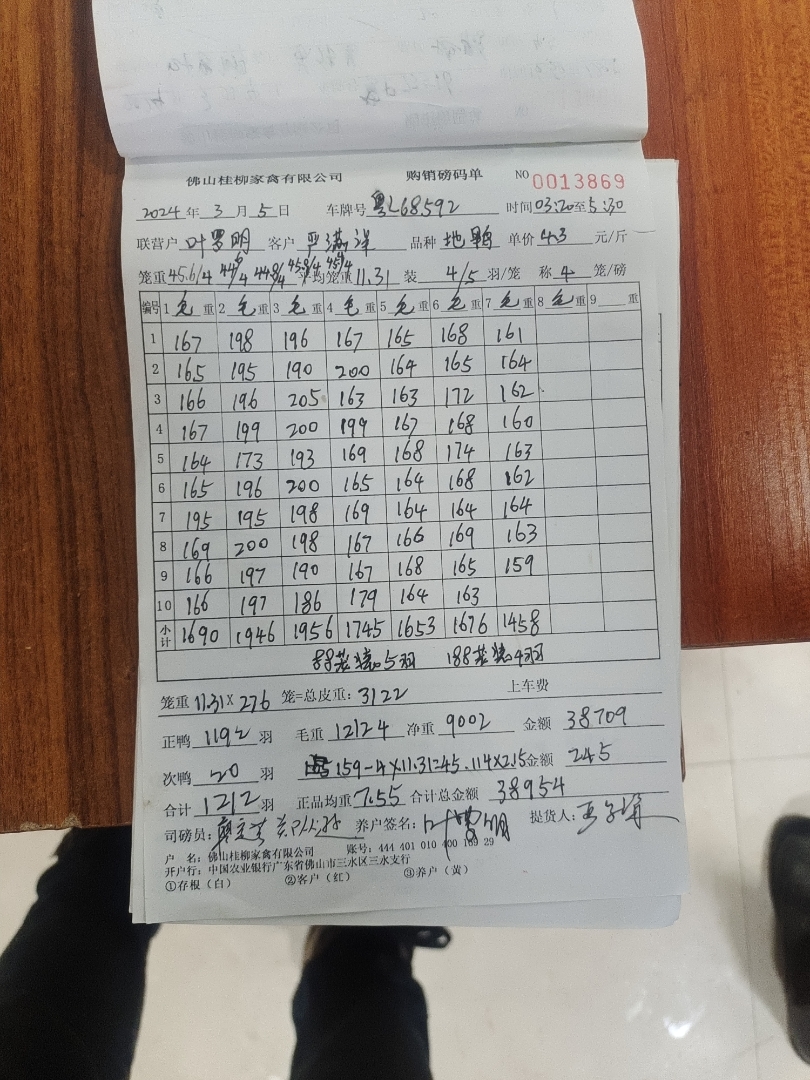 佛山桂柳家禽有限公司 购销磅码单 NO 0013869
2024 年 3 月 5 日 车牌号 粤L68592 时间 03:20 至 5:30
联营户 叶罗明 客户 严满洋 品种 地鸭 单价 4.3 元/斤
笼重 45.6/4 44.8/4 45.8/4 平均笼重 11.31 装 4/5 羽/笼 称 4 笼/磅
编号 1 毛 重 2 毛 重 3 毛 重 4 毛 重 5 毛 重 6 毛 重 7 毛 重 8 毛 重 9 重
1 167 198 196 167 165 168 161
2 165 195 190 200 164 165 164
3 166 196 205 163 163 172 162
4 167 199 200 199 167 168 160
5 164 173 193 169 168 174 163
6 165 196 200 165 164 168 162
7 195 195 198 169 164 164 164
8 169 200 198 167 166 169 163
9 166 197 190 167 168 165 159
10 166 197 186 179 164 163
小计 1690 1946 1956 1745 1653 1676 1458
88笼装5羽 188笼装4羽
笼重 11.31 X 276 笼=总皮重: 3122 上车费
正鸭 1192 羽 毛重 12124 净重 9002 金额 38709
次鸭 20 羽 159-4X11.31=45.114X2.15 金额 245
合计 1212 羽 正品均重 7.55 合计总金额 38954
司磅员: 养户签名: 叶罗明 提货人:
户 名: 佛山桂柳家禽有限公司 账号: 444 401 010 400 169 29
开户行: 中国农业银行广东省佛山市三水区三水支行
①存根(白) ②客户(红) ③养户(黄)